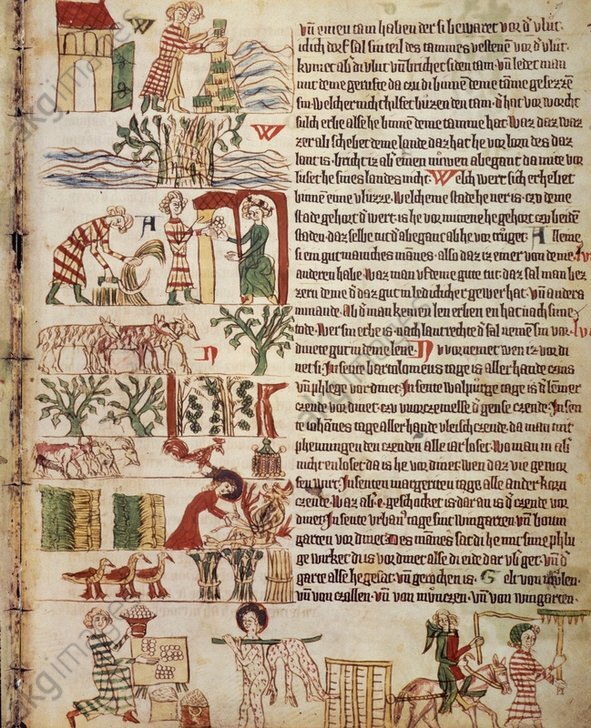 vn̄ einen tam haben der si bewaret vor d' vlut.
idich dorf sal sin teil des tammes vestenē vor d' vlut.
kvmet ab' di vlut vn̄ brichet si den tam. vn̄ ledet man
mit deme gerufte da czu di binnē deme tāme gesezzē
sin. Welcher nicht hilfet buzen den tam. d' hat vor worcht
sulch erbe alse he binnē deme tamme hat. Waz daz waz
zer abe schebet deme lande daz hat he vor lorn des daz
lant is. bricht iz ab' einen nuwen abegant da mite vor
luset he sines landes nicht. Welch wert sich erhebet
binnē eime vlizze. Welcheme stade he ner is. czv deme
stade gehort d' wert. is he vor mittene he gehort czv beidē
staden. daz selbe tut d' abegant ab he vor truget. Alleine
si ein gut manches mānes. also daz iz einer von deme
anderen habe. Waz man vfeme gute tut. daz sal man bez
zern deme d' daz gut in ledichlicher gewer hat. vn̄ anders
nimande. Ab d' man keinen len erben en hat nach sime
tode. Wer sin erbe is. nach lantrechte d' sal nemē sin vor
dinete gut in deme lene. Nv vornemet wen iz vor di
net si. In sente bartolomeus tage is aller hande czins
vn̄ phlege vor dinet. In sente walpurge tage is d' lemer
czende vor dinet. czv worczemesse d' gense czende. In sen
te iohānes tage aller hande vleisch czende. da man mit
phenningen den czenden alle iar loset. Wo man in ab'
nicht en loset da is he vor dinet. wen daz vie gewor
fen wirt. In senten margreten tage alle ander korn
czende. Waz ab' e. geschocket is dar an is d' czente vor
dinet. In sente vrban' tage sint wingarten vn̄ boum
garten vor dinet. Des mānes sat di he mit sime phlu
ge wirket di is vor dinet alse di eide dar vb' get. vn̄ d'
garte alse he gesat. vn̄ gerechen is. Gelt von mulen.
vn̄ von czollen. vn̄ von munczen. vn̄ von wingarten.
W
W
A
N
akg-images